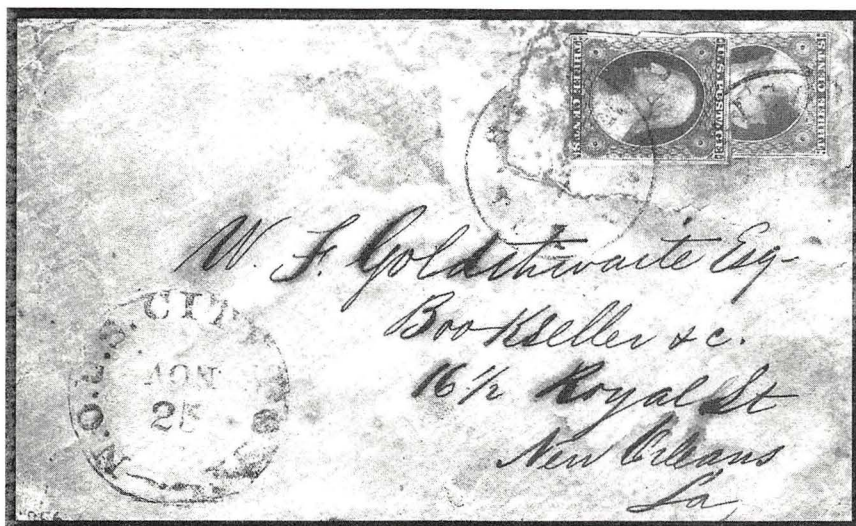 THREE CENTS
U.S. POSTAGE
THREE CENTS
W. F. Goldthwaite Esq-
Bookseller &c.
16 1/2 Royal St
New Orleans
La
N.O.U.S. CITY
NOV
25